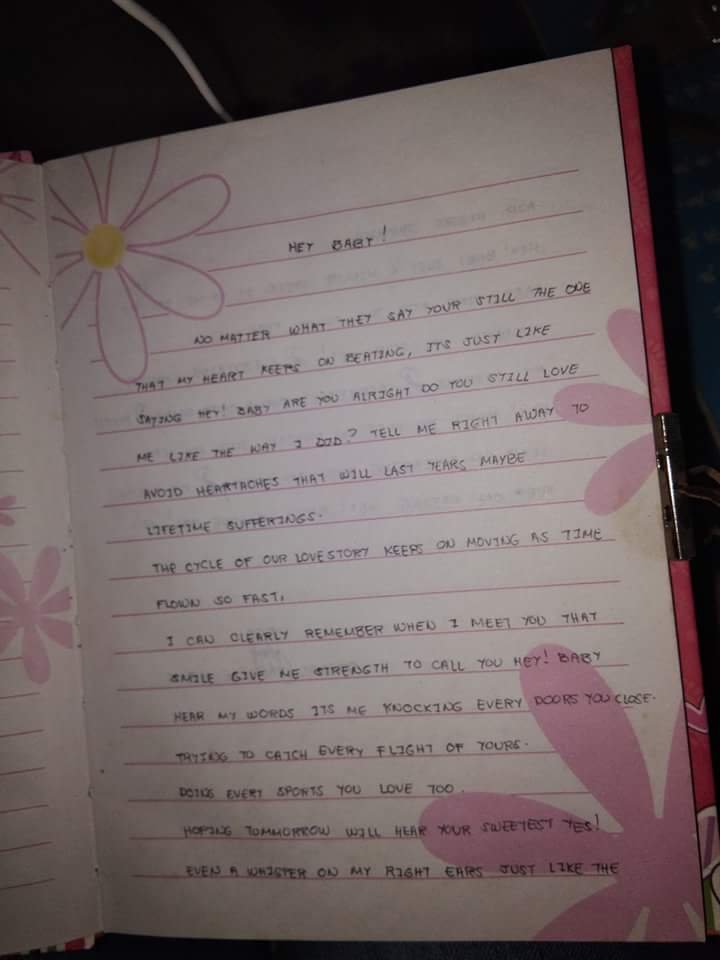 HEY BABY!
NO MATTER WHAT THEY SAY YOUR STILL THE ONE
THAT MY HEART KEEPS ON BEATING, ITS JUST LIKE
SAYING HEY! BABY ARE YOU ALRIGHT DO YOU STILL LOVE
ME LIKE THE WAY I DID? TELL ME RIGHT AWAY TO
AVOID HEARTACHES THAT WILL LAST YEARS MAYBE
LIFETIME SUFFERINGS.
THE CYCLE OF OUR LOVESTORY KEEPS ON MOVING AS TIME
FLOWN SO FAST,
I CAN CLEARLY REMEMBER WHEN I MEET YOU THAT
SMILE GIVE ME STRENGTH TO CALL YOU HEY! BABY
HEAR MY WORDS ITS ME KNOCKING EVERY DOORS YOU CLOSE.
TRYING TO CATCH EVERY FLIGHT OF YOURS.
DOING EVERY SPORTS YOU LOVE TOO.
HOPING TOMMORROW WILL HEAR YOUR SWEETEST YES!
EVEN A WHISTER ON MY RIGHT EARS JUST LIKE THE